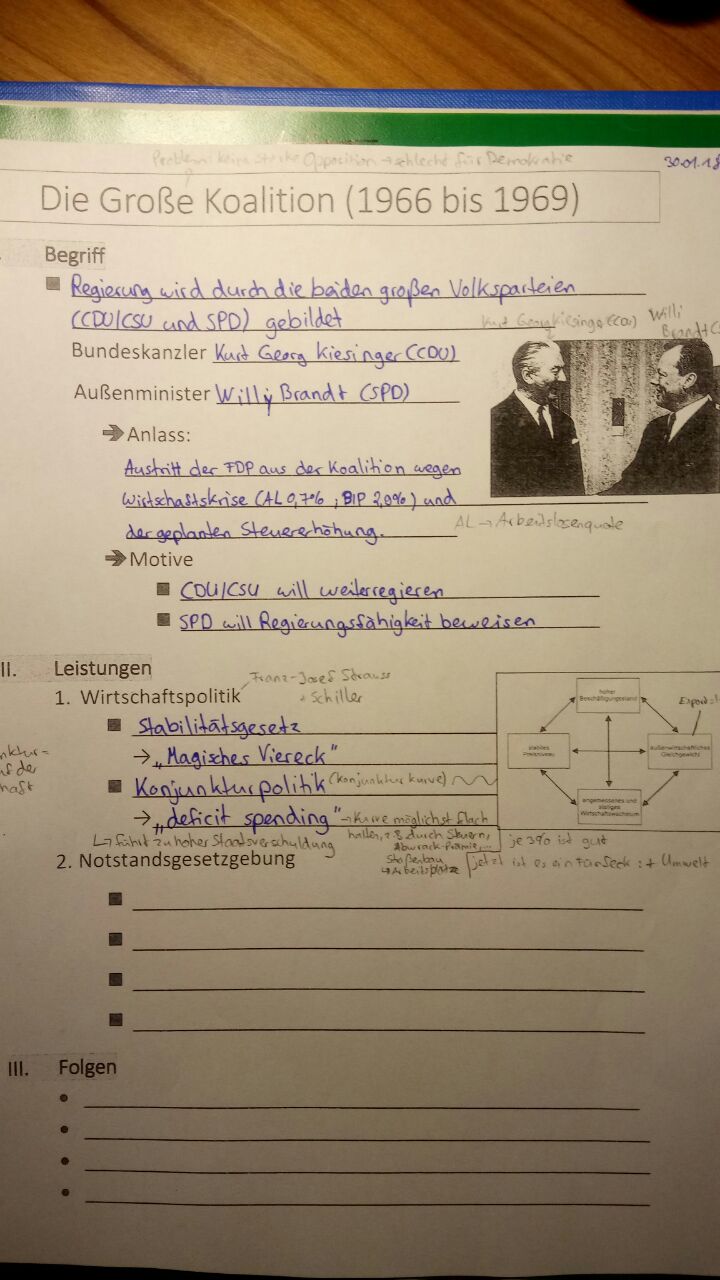 Problem: keine starke Opposition → schlecht für Demokratie
30.01.18
Die Große Koalition (1966 bis 1969)
Begriff
Regierung wird durch die beiden großen Volksparteien
(CDU/CSU und SPD) gebildet
Kurt Georg Kiesinger (CDU)
Willi
Brandt
Bundeskanzler Kurt Georg Kiesinger (CDU)
Außenminister Willy Brandt (SPD)
Anlass:
Austritt der FDP aus der Koalition wegen
Wirtschaftskrise (AL 0,7%, BIP 2,9%) und
der geplanten Steuererhöhung.
AL → Arbeitslosenquote
Motive
CDU/CSU will weiterregieren
SPD will Regierungsfähigkeit beweisen
II. Leistungen
Franz-Josef Strauss
+ Schiller
1. Wirtschaftspolitik
Stabilitätsgesetz
→ „Magisches Viereck"
Konjunkturpolitik (Konjunkturkurve)
→ „deficit spending" → Kurve möglichst flach
halten, z.B durch Steuern,
Abwrack-Prämie,...
Straßenbau
↳ Arbeitsplätze
↳ führt zu hoher Staatsverschuldung
hoher
Beschäftigungsstand
Export
stabiles
Preisniveau
außenwirtschaftliches
Gleichgewicht
angemessenes und
stetiges
Wirtschaftswachstum
je 3% ist gut
jetzt ist es ein Fünfeck: + Umwelt
2. Notstandsgesetzgebung
III. Folgen